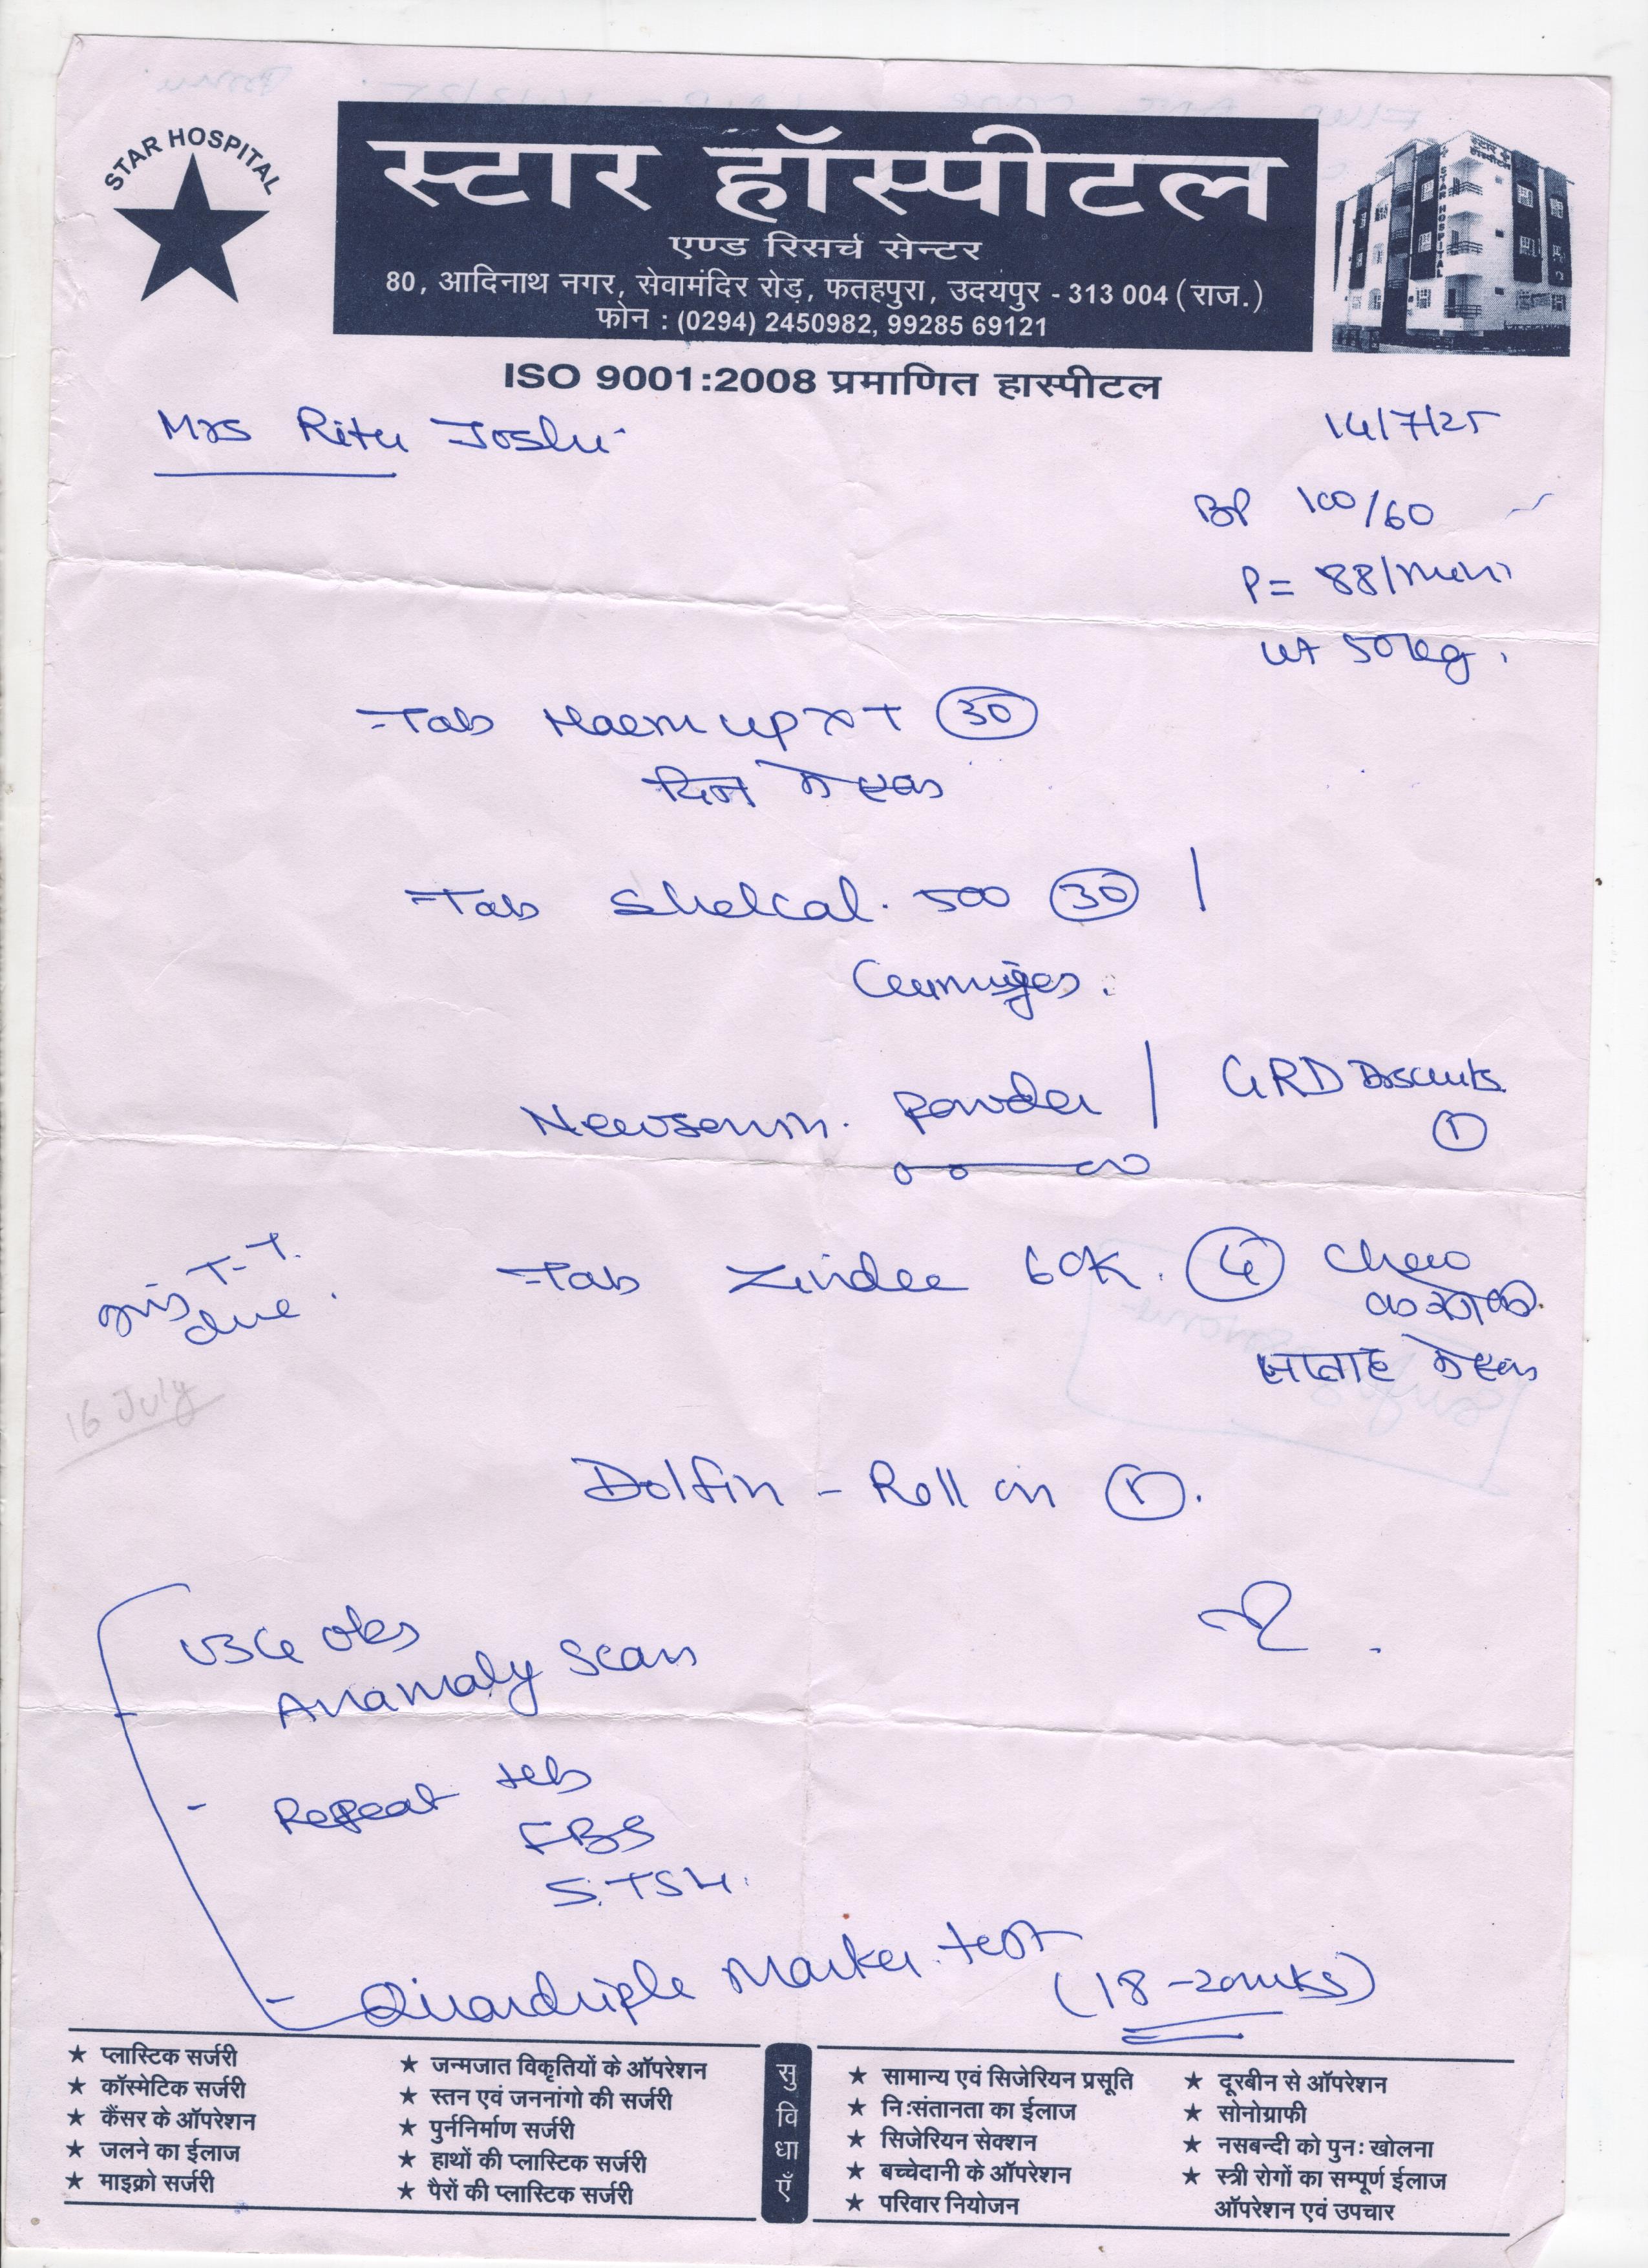 STAR HOSPITAL
स्टार हॉस्पीटल
एण्ड रिसर्च सेन्टर
80, आदिनाथ नगर, सेवामंदिर रोड़, फतहपुरा, उदयपुर - 313 004 (राज.)
फोन : (0294) 2450982, 99285 69121
ISO 9001:2008 प्रमाणित हास्पीटल
Mrs Ritu Joshi
14/7/25
BP 100/60
P = 88/min
Wt 50kg.
Tab Haem up XT 30
दिन में एक
Tab Shelcal. 500 30 |
Powder | GRD Biscuits
1
T.T.
due.
16 July
Tab 60K. 4 Chew
सप्ताह में एक
Dolfin - Roll on 1.
USG Obs
Anamaly Scan
- Repeat Hb
FBS
S. TSH.
- Quadruple Marker. test
(18-20wks)
★ प्लास्टिक सर्जरी
★ कॉस्मेटिक सर्जरी
★ कैंसर के ऑपरेशन
★ जलने का ईलाज
★ माइक्रो सर्जरी
★ जन्मजात विकृतियों के ऑपरेशन
★ स्तन एवं जननांगो की सर्जरी
★ पुर्ननिर्माण सर्जरी
★ हाथों की प्लास्टिक सर्जरी
★ पैरों की प्लास्टिक सर्जरी
सुविधाएँ
★ सामान्य एवं सिजेरियन प्रसूति
★ निःसंतानता का ईलाज
★ सिजेरियन सेक्शन
★ बच्चेदानी के ऑपरेशन
★ परिवार नियोजन
★ दूरबीन से ऑपरेशन
★ सोनोग्राफी
★ नसबन्दी को पुनः खोलना
★ स्त्री रोगों का सम्पूर्ण ईलाज
ऑपरेशन एवं उपचार